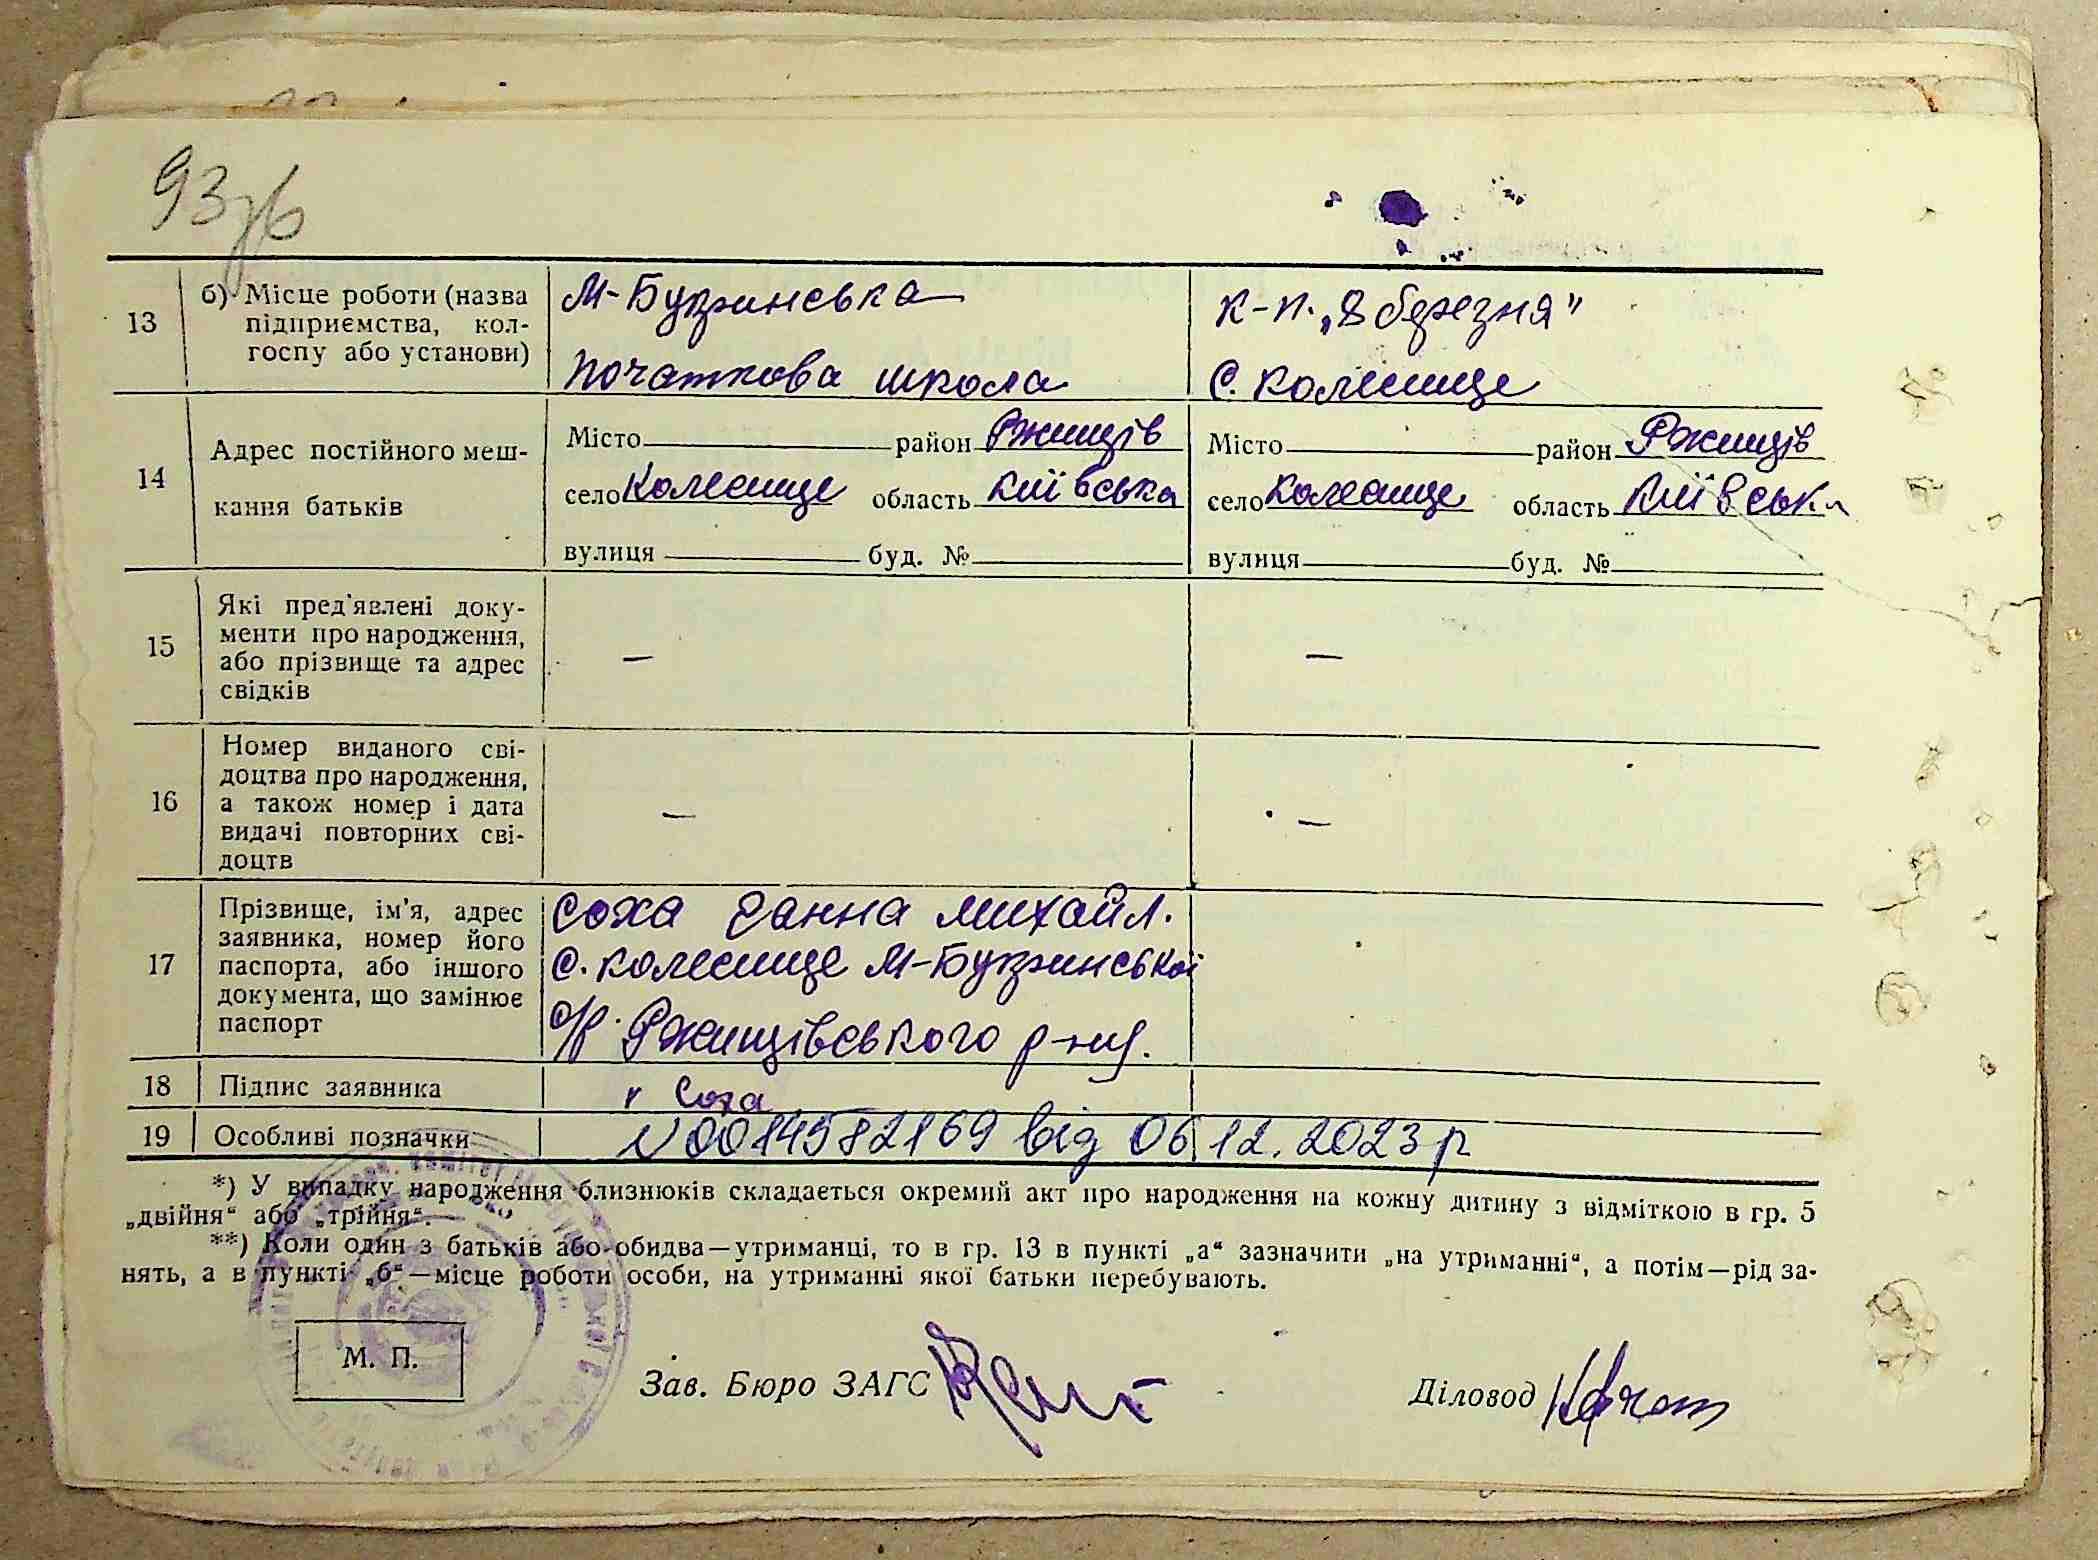 93 зв
13
б) Місце роботи (назва
підприємства, кол-
госпу або установи)
М-Букринська
початкова школа
к-п. „8 березня"
с. Колесище
14
Адрес постійного меш-
кання батьків
Місто район Ржищів
село Колесище область Київська
вулиця буд. №
Місто район Ржищів
село Колесище область Київськ
вулиця буд. №
15
Які пред'явлені доку-
менти про народження,
або прізвище та адрес
свідків
—
—
16
Номер виданого сві-
доцтва про народження,
а також номер і дата
видачі повторних сві-
доцтв
—
—
17
Прізвище, ім'я, адрес
заявника, номер його
паспорта, або іншого
документа, що замінює
паспорт
Соха Ганна Михайл.
с. Колесище М-Букринської
с/р. Ржищівського р-ну.
18
Підпис заявника
Соха
19
Особливі позначки
N 0014582169 від 06.12.2023 р
*) У випадку народження близнюків складається окремий акт про народження на кожну дитину з відміткою в гр. 5
„двійня“ або „трійня“.
**) Коли один з батьків або обидва—утриманці, то в гр. 13 в пункті „а“ зазначити „на утриманні“, а потім—рід за-
нять, а в пункті „б“—місце роботи особи, на утриманні якої батьки перебувають.
М. П.
Зав. Бюро ЗАГС
Діловод